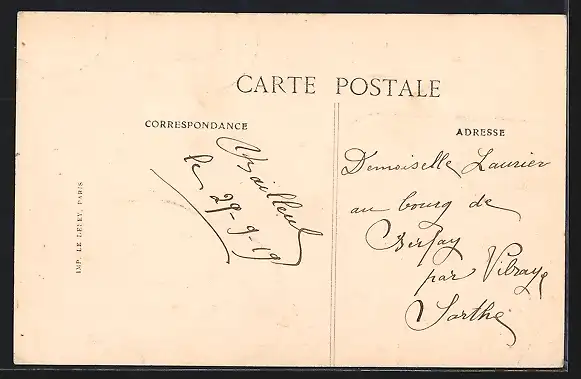 CARTE POSTALE
CORRESPONDANCE
Bailleul
le 29-9-19
ADRESSE
Demoiselle Laurier
au bourg de
Berfay
par Vibraye
Sarthe
IMP. LE DELEY, PARIS